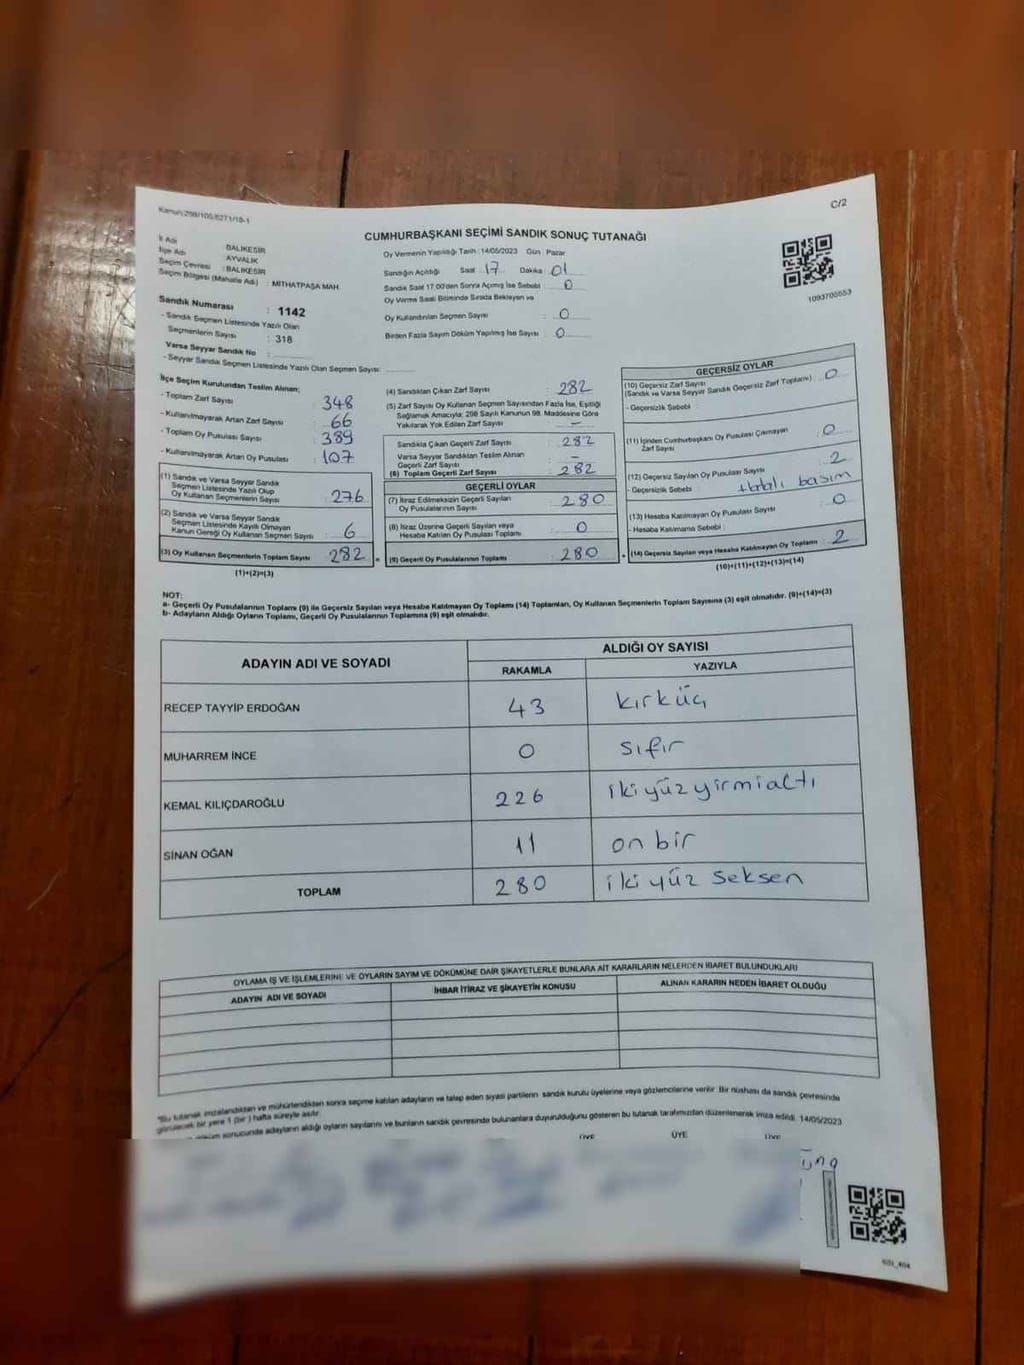 Kanun:298/105/6271/18-1
C/2
CUMHURBAŞKANI SEÇİMİ SANDIK SONUÇ TUTANAĞI
İl Adı : BALIKESİR
İlçe Adı : AYVALIK
Seçim Çevresi : BALIKESİR
Seçim Bölgesi (Mahalle Adı) : MİTHATPAŞA MAH.
Sandık Numarası : 1142
- Sandık Seçmen Listesinde Yazılı Olan
Seçmenlerin Sayısı : 318
Varsa Seyyar Sandık No :
- Seyyar Sandık Seçmen Listesinde Yazılı Olan Seçmen Sayısı:
Oy Vermenin Yapıldığı Tarih : 14/05/2023 Gün : Pazar
Sandığın Açıldığı Saat : 17 Dakika : 01
Sandık Saat 17:00'den Sonra Açılmış İse Sebebi : 0
Oy Verme Saati Bitiminde Sırada Bekleyen ve
Oy Kullandırılan Seçmen Sayısı : 0
Birden Fazla Sayım Döküm Yapılmış İse Sayısı : 0
1093700553
İlçe Seçim Kurulundan Teslim Alınan;
- Toplam Zarf Sayısı : 348
- Kullanılmayarak Artan Zarf Sayısı : 66
- Toplam Oy Pusulası Sayısı : 389
- Kullanılmayarak Artan Oy Pusulası : 107
(1) Sandık ve Varsa Seyyar Sandık
Seçmen Listesinde Yazılı Olup
Oy Kullanan Seçmenlerin Sayısı : 276
(2) Sandık ve Varsa Seyyar Sandık
Seçmen Listesinde Kayıtlı Olmayan
Kanun Gereği Oy Kullanan Seçmen Sayısı : 6
(3) Oy Kullanan Seçmenlerin Toplam Sayısı : 282
(1)+(2)=(3)
(4) Sandıktan Çıkan Zarf Sayısı : 282
(5) Zarf Sayısı Oy Kullanan Seçmen Sayısından Fazla İse, Eşitliği
Sağlamak Amacıyla; 298 Sayılı Kanunun 98. Maddesine Göre
Yakılarak Yok Edilen Zarf Sayısı : -
Sandıkta Çıkan Geçerli Zarf Sayısı : 282
Varsa Seyyar Sandıktan Teslim Alınan
Geçerli Zarf Sayısı : -
(6) Toplam Geçerli Zarf Sayısı : 282
GEÇERLİ OYLAR
(7) İtiraz Edilmeksizin Geçerli Sayılan
Oy Pusulalarının Sayısı : 280
(8) İtiraz Üzerine Geçerli Sayılan veya
Hesaba Katılan Oy Pusulası Toplamı : 0
(9) Geçerli Oy Pusulalarının Toplamı : 280
GEÇERSİZ OYLAR
(10) Geçersiz Zarf Sayısı
(Sandık ve Varsa Seyyar Sandık Geçersiz Zarf Toplamı) : 0
- Geçersizlik Sebebi :
(11) İçinden Cumhurbaşkanı Oy Pusulası Çıkmayan
Zarf Sayısı : 0
(12) Geçersiz Sayılan Oy Pusulası Sayısı : 2
- Geçersizlik Sebebi : Hatalı basım
(13) Hesaba Katılmayan Oy Pusulası Sayısı : 0
- Hesaba Katılmama Sebebi :
(14) Geçersiz Sayılan veya Hesaba Katılmayan Oy Toplamı : 2
(10)+(11)+(12)+(13)=(14)
NOT:
a- Geçerli Oy Pusulalarının Toplamı (9) ile Geçersiz Sayılan veya Hesaba Katılmayan Oy Toplamı (14) Toplamları, Oy Kullanan Seçmenlerin Toplam Sayısına (3) eşit olmalıdır. (9)+(14)=(3)
b- Adayların Aldığı Oyların Toplamı, Geçerli Oy Pusulalarının Toplamına (9) eşit olmalıdır.
ADAYIN ADI VE SOYADI
ALDIĞI OY SAYISI
RAKAMLA YAZIYLA
RECEP TAYYİP ERDOĞAN 43 kırküç
MUHARREM İNCE 0 sıfır
KEMAL KILIÇDAROĞLU 226 ikiyüzyirmialtı
SİNAN OĞAN 11 on bir
TOPLAM 280 iki yüz seksen
OYLAMA İŞ VE İŞLEMLERİNE VE OYLARIN SAYIM VE DÖKÜMÜNE DAİR ŞİKAYETLERLE BUNLARA AİT KARARLARIN NELERDEN İBARET BULUNDUKLARI
ADAYIN ADI VE SOYADI İHBAR İTİRAZ VE ŞİKAYETİN KONUSU ALINAN KARARIN NEDEN İBARET OLDUĞU
*Bu tutanak imzalandıktan ve mühürlendikten sonra seçime katılan adayların ve talep eden siyasi partilerin sandık kurulu üyelerine veya gözlemcilerine verilir. Bir nüshası da sandık çevresinde
görülecek bir yere 1 (bir ) hafta süreyle asılır.
döküm sonucunda adayların aldığı oyların sayılarını ve bunların sandık çevresinde bulunanlara duyurulduğunu gösteren bu tutanak tarafımızdan düzenlenerek imza edildi. 14/05/2023
ÜYE ÜYE ÜYE